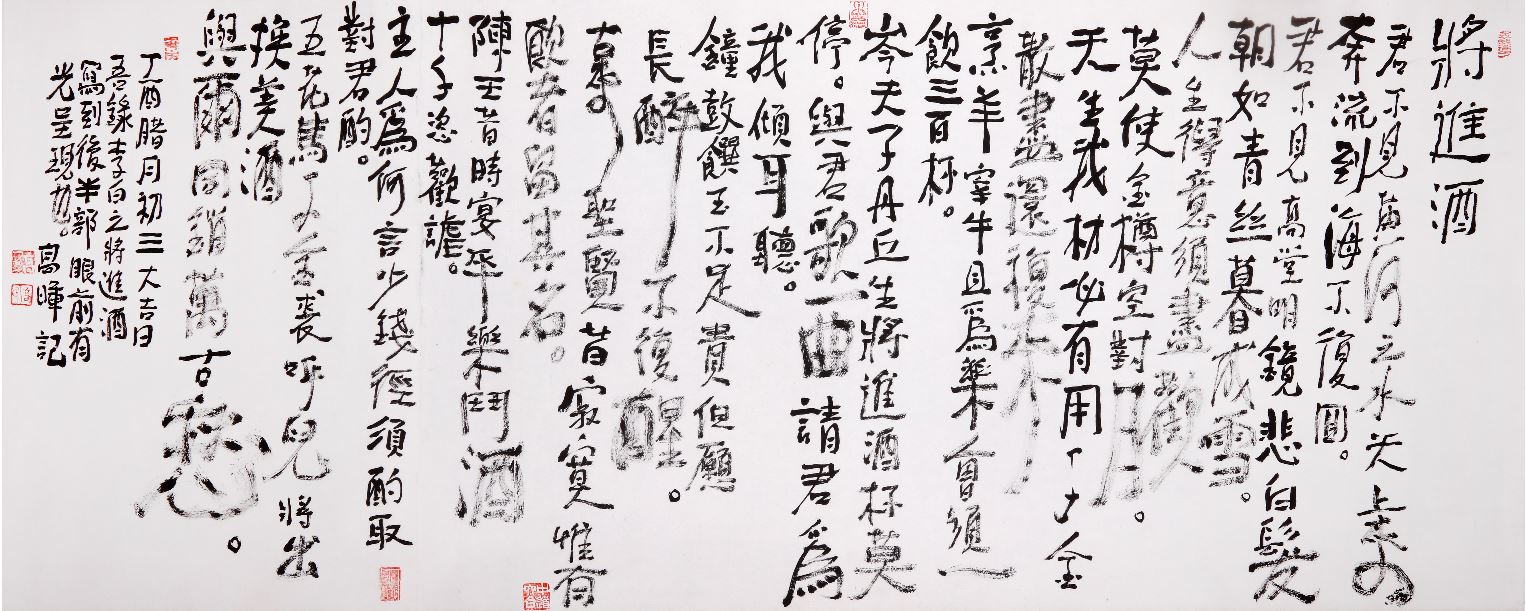 將進酒
君不見黃河之水天上來
奔流到海不復回。
君不見高堂明鏡悲白髮
朝如青絲暮成雪。
人生得意須盡歡
莫使金樽空對月。
天生我材必有用千金
散盡還復來
烹羊宰牛且爲樂會須一
飲三百杯。
岑夫子丹丘生將進酒杯莫
停。與君歌一曲請君爲
我傾耳聽。
鐘鼓饌玉不足貴但願
長醉不復醒。
古來聖賢皆寂寞惟有
飲者留其名。
陳王昔時宴平樂鬥酒
十千恣歡謔。
主人爲何言少錢徑須酌取
對君酌。
五花馬千金裘呼兒將出
換美酒
與爾同銷萬古愁。
丁酉腊月初三大吉日
吾錄李白之將進酒
寫到後半部眼前有
光呈現也。高暉記